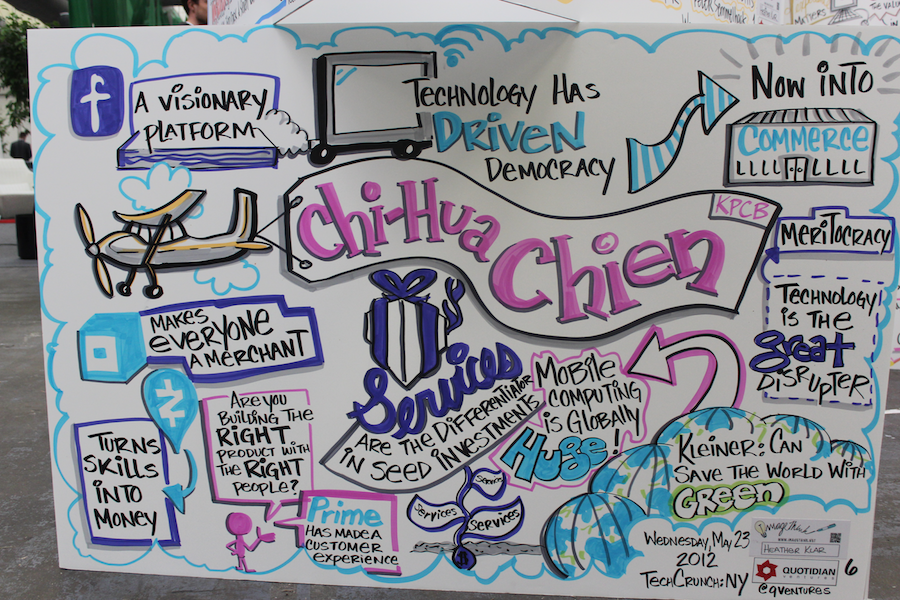 f
A VISIONARY
PLATFORM
TECHNOLOGY HAS
DRIVEN
DEMOCRACY
NOW INTO
COMMERCE
Chi-Hua
Chien
KPCB
MERITOCRACY
TECHNOLOGY
IS THE
great
DISRUPTER
MAKES
EVERYONE
A MERCHANT
Services
ARE THE DIFFERENTIATOR
IN SEED INVESTMENTS
MOBILE
COMPUTING
IS GLOBALLY
HUGE!
TURNS
SKILLS
INTO
MONEY
ARE YOU
BUILDING THE
RIGHT
PRODUCT WITH
THE RIGHT
PEOPLE?
Prime
HAS MADE A
CUSTOMER
EXPERIENCE
Services
Services
KLEINER: CAN
SAVE THE WORLD WITH
GREEN
WEDNESDAY, MAY 23
2012
TECHCRUNCH: NY
ImageThink
HEATHER KLAR
QUOTIDIAN
VENTURES
@QVENTURES
6